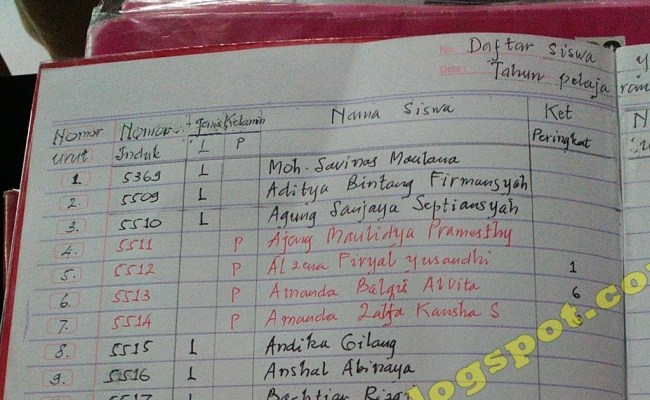 No: Daftar Siswa
Date: Tahun pelaja
Nomor urut Nomor Induk Jenis Kelamin L P Nama Siswa Ket Peringkat
1. 5369 L Moh. Savinas Maulana
2. 5509 L Aditya Bintang Firmansyah
3. 5510 L Agung Sanjaya Septiansyah
4. 5511 P Ajeng Maulidya Pramesthy
5. 5512 P Alzena Firyal Yusandhi 1
6. 5513 P Amanda Balqis Alvita 6
7. 5514 P Amanda Zalfa Kansha S
8. 5515 L Andika Gilang
9. 5516 L Anshal Abinaya
5517 L
logspot.co